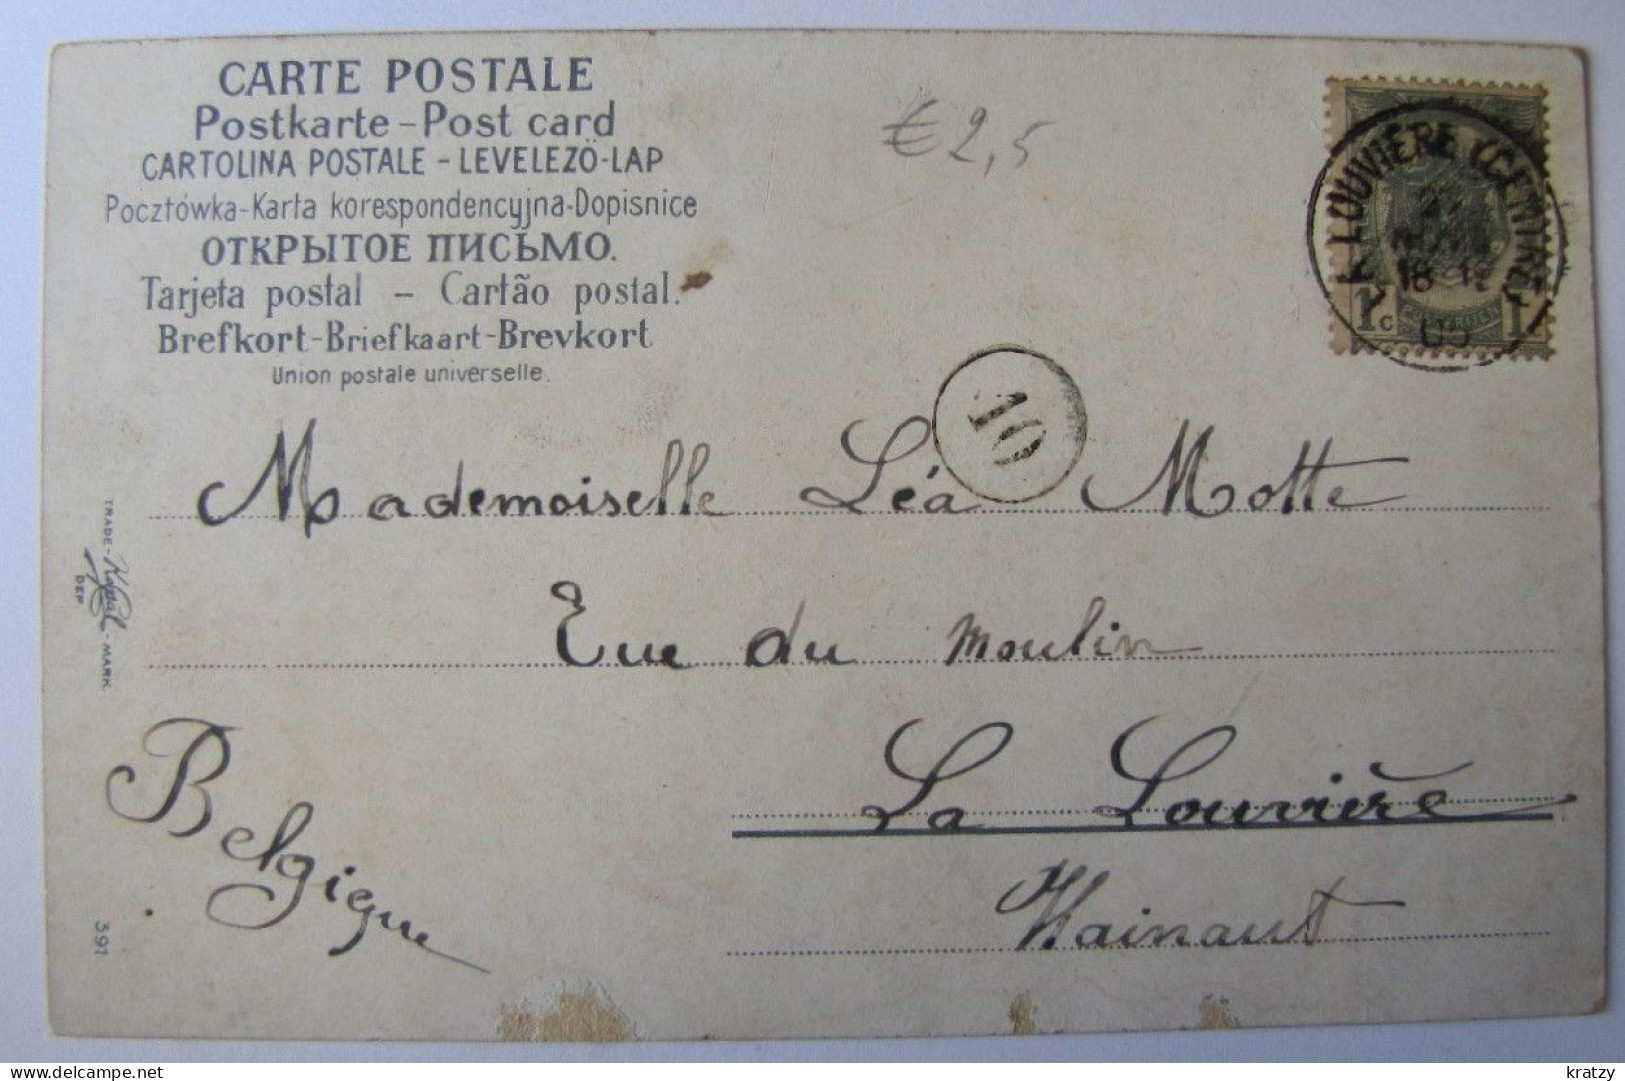 CARTE POSTALE
Postkarte – Post card
CARTOLINA POSTALE – LEVELEZÖ-LAP
Pocztówka-Karta korespondencyjna-Dopisnice
ОТКРЫТОЕ ПИСЬМО.
Tarjeta postal – Cartão postal.
Brefkort-Briefkaart-Brevkort
Union postale universelle.
€ 2,5
LA LOUVIÈRE (CENTRE)
18
1c 1
10
Mademoiselle Léa Motte
Rue du Moulin
La Louvière
Hainaut
Belgique
TRADE - MARK.
DEP.
391
kratzy